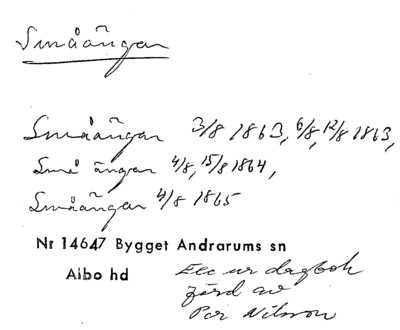 Småängan
Småängan 3/8 1863, 6/8, 12/8 1863,
Små ängan 4/8, 15/8 1864,
Småängan 4/8 1865
Nr 14647 Bygget Andrarums sn
Albo hd Exc ur dagbok
förd av
Per Nilsson